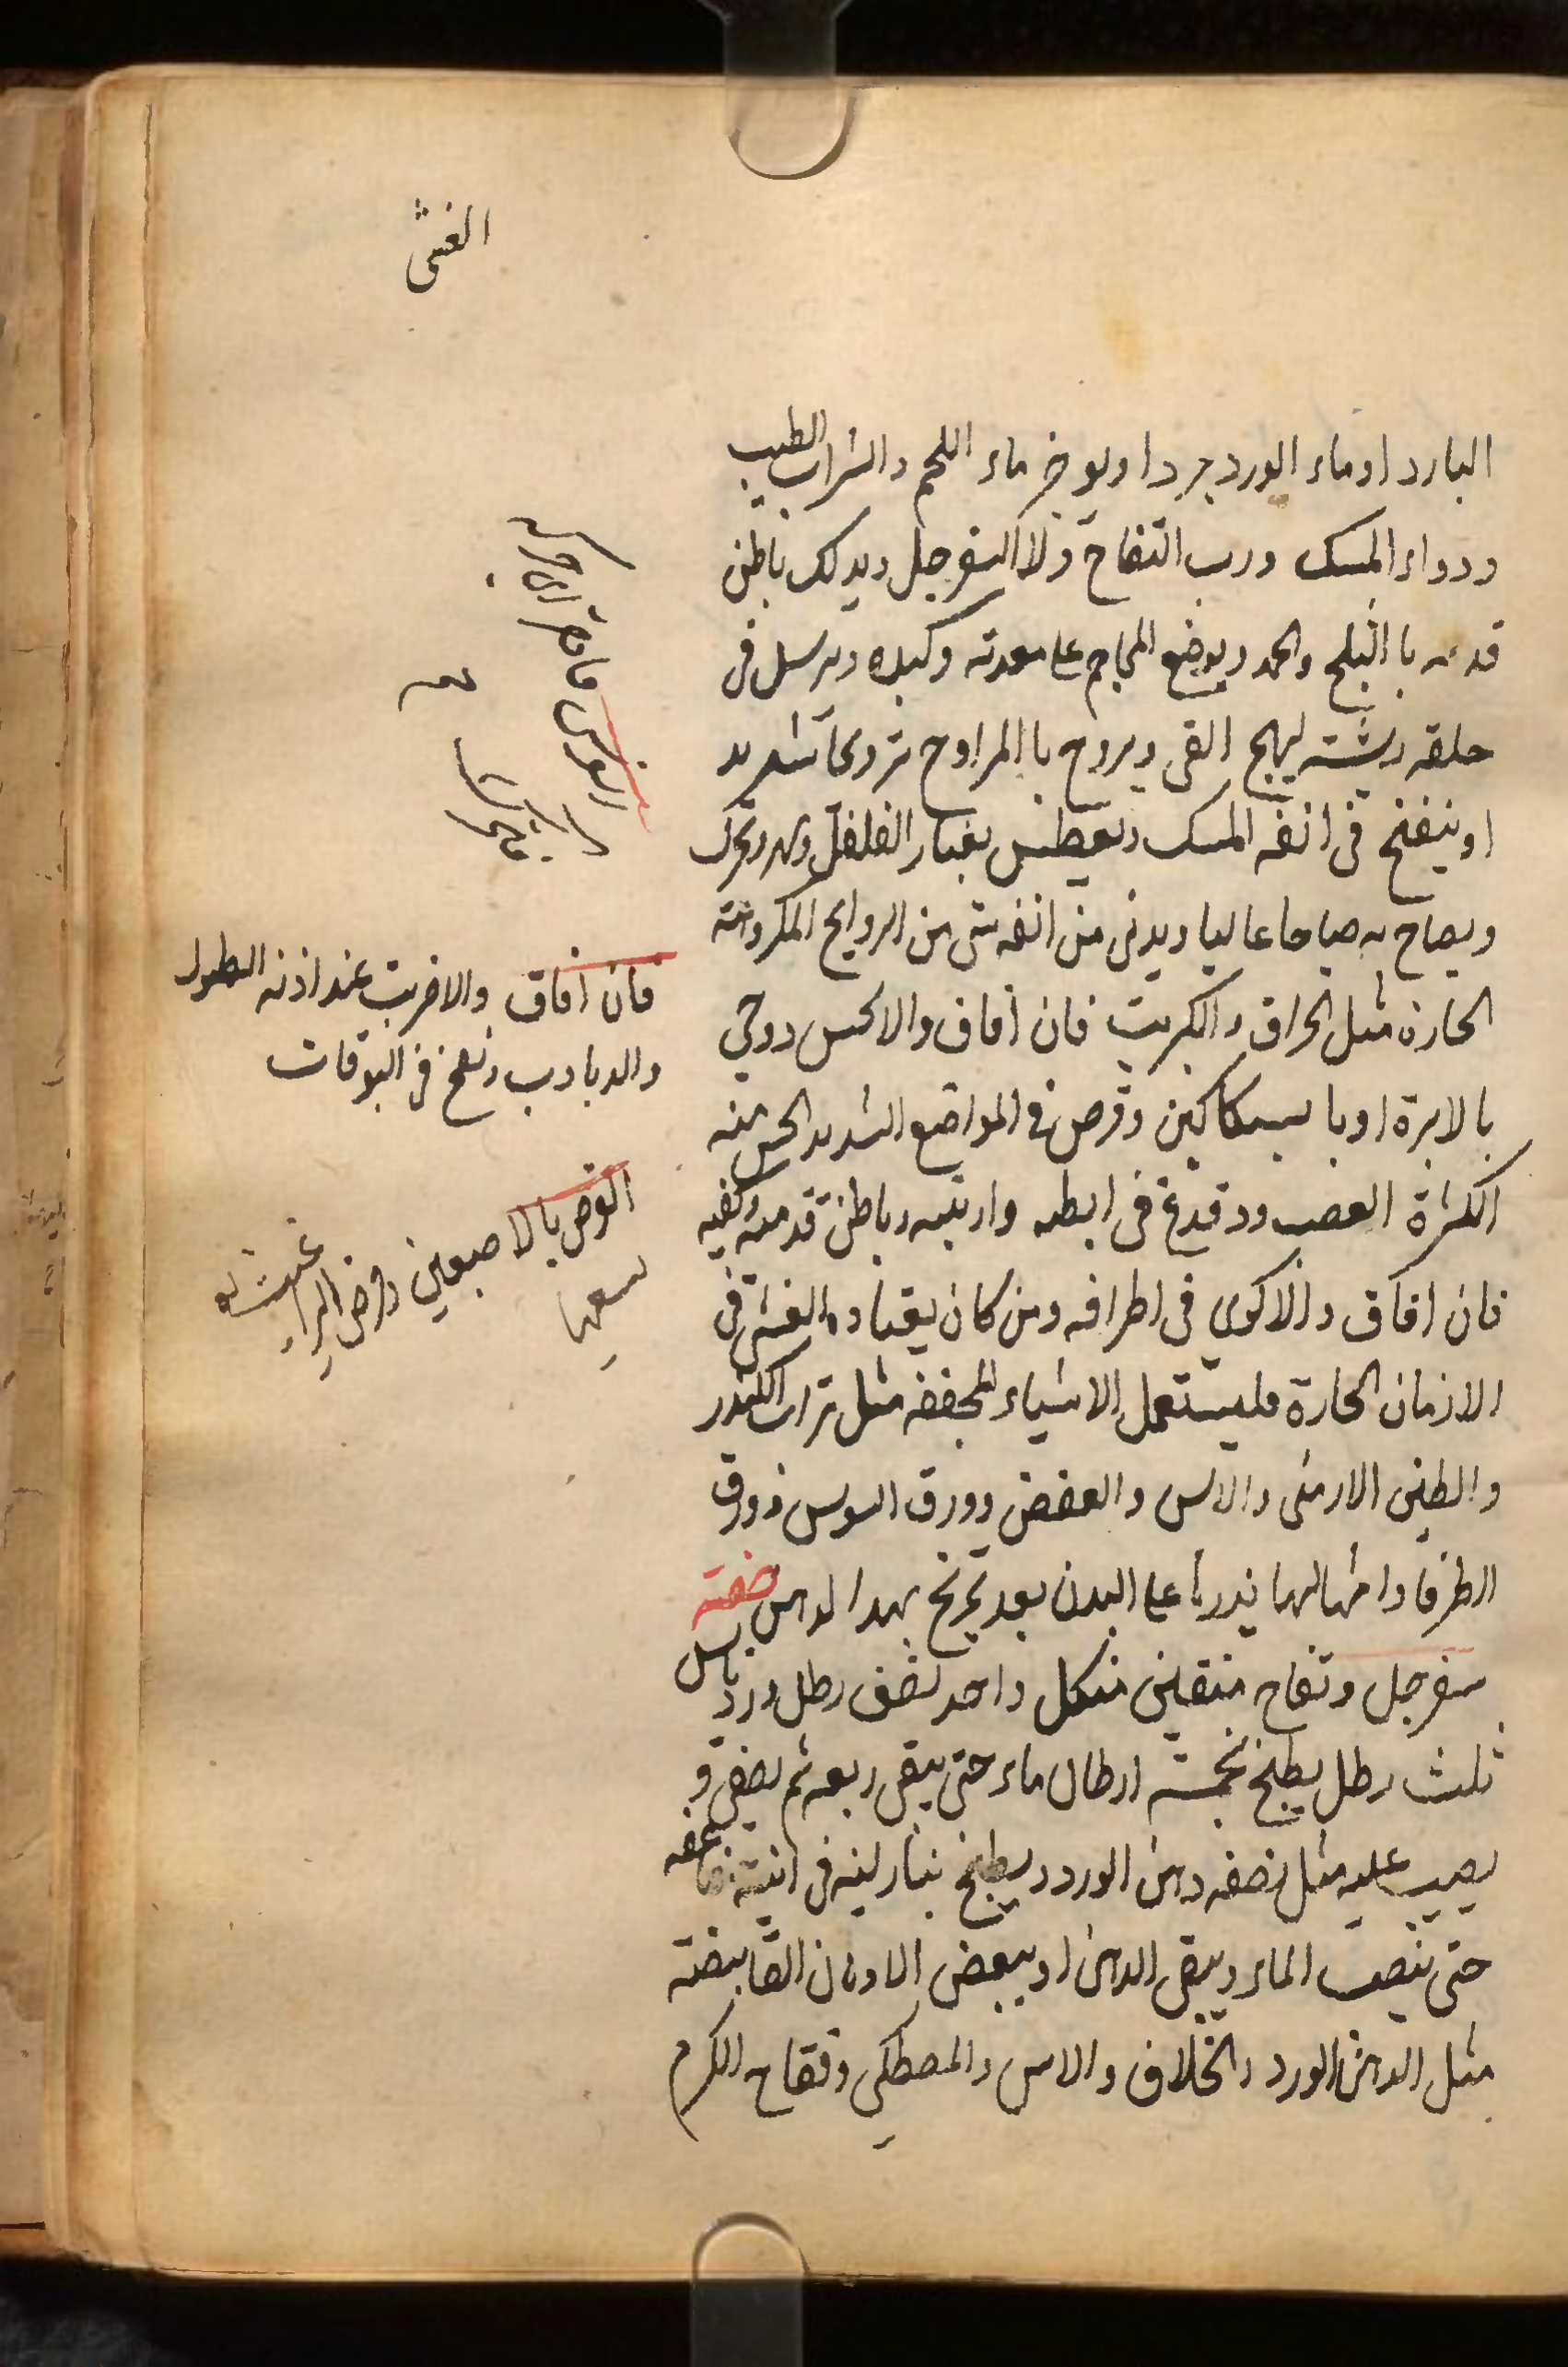 الغشى
البارد او ماء الورد جردا ويوخر ماء اللحم والشراب الطيب
ودواء المسك ورب التفاح ولا السفرجل ويدلك باطن
قدمه با الثلج والحمد ويوضع المحاجم على معدته وكبده ويرسل فى
حلقه ريشته ليهج القى ويروح با المراوح ترويحا شديد
او ينفخ فى انفه المسك ويعطس بغبار الفلفل ويحرك
ويصاح به صياحا عاليا ويدنى من انفه شى من الروايح المكروهته
الحارة مثل الحراق والكبريت فان أفاق والا كبس دوحى
بالابرة او با سكاكين وقرص فى المواضع الشديد الحس منه
الكثرة العصب ودقدغ فى ابطه واربتيه وباطن قدميه وكفيه
فان افاق والا كوى فى اطرافه ومن كان يعتاده الغشى فى
الازمان الحارة فليستعمل الاشياء المجففه مثل تراب الكندر
والطين الارمنى والاس والعفض وورق السوس وورق
الطرفا وامثالها يذرها على البدن بعد تمريخ بهدا الدهن صفته
سفرجل وتفاح منقين من كل واحد نصف رطل ورد يابس
ثلث رطل يطبخ بخمسته ارطال ماء حتى يبقى ربعه ثم يصفى و
يصب عليه مثل نصفه دهن الورد ويطبخ بنار لينه فى انيته
حتى ينصب الماء ويبقى الدهن او ببعض الادهان القابضته
مثل الدهن الورد والخلاف والاس والمصطكى وفقاح الكرم
فان أفاق والا ضربت عند اذنه الطبول
والدبادب ونفخ فى البوقات
القرص بالاصبعين